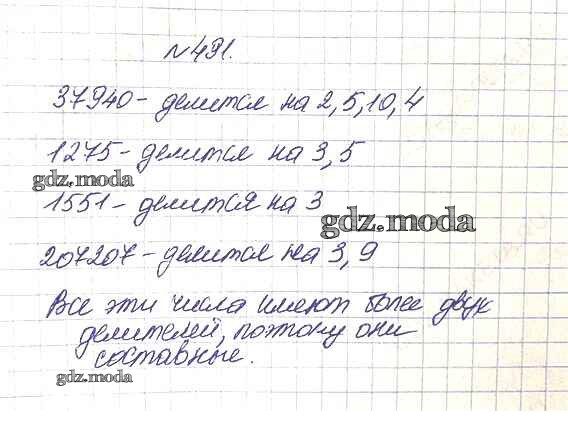 №491.
37940 - делится на 2, 5, 10, 4
1275 - делится на 3, 5
gdz.moda
1551 - делится на 3
gdz.moda
207207 - делится на 3, 9
Все эти числа имеют более двух
делителей, поэтому они
составные.
gdz.moda